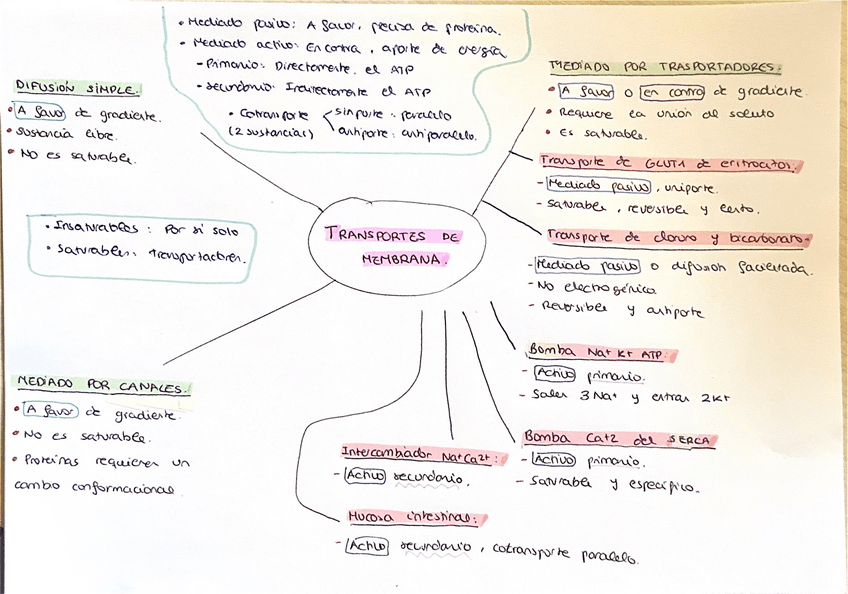 • Mediado pasivo: A favor, precisa de proteina.
• Mediado activo: En contra, aporte de energía
- Primario: Directamente. el ATP
- Secundario: Indirectamente el ATP
• Cotransporte
(2 sustancias)
simporte: paralelo
antiporte: antiparalelo.
DIFUSIÓN SIMPLE.
• A favor de gradiente.
• Sustancia libre.
• No es saturable.
• Insaturables: Por si solo
• Saturables: transportadores.
TRANSPORTES DE
MEMBRANA.
MEDIADO POR TRASPORTADORES:
• A favor o en contra de gradiente.
• Requiere la unión del soluto
• es saturable.
Transporte de GLUT1 de eritrocitos.
- Mediado pasivo, uniporte.
- Saturable, reversible y lento.
Transporte de cloruro y bicarbonato-
- Mediado pasivo o difusion facilitada.
- No electrogénica
- Reversible y antiporte
Bomba Na+ K+ ATP:
- Activo primario.
- Salen 3 Na+ y entran 2K+
Bomba Ca+2 del SERCA
- Activo primario.
- Saturable y específico.
MEDIADO POR CANALES.
• A favor de gradiente.
• No es saturable.
• Proteinas requieren un
cambio conformacional
Intercambiador Na+Ca2+:
- Activo secundario.
Mucosa intestinal:
- Activo secundario, cotransporte paralelo.